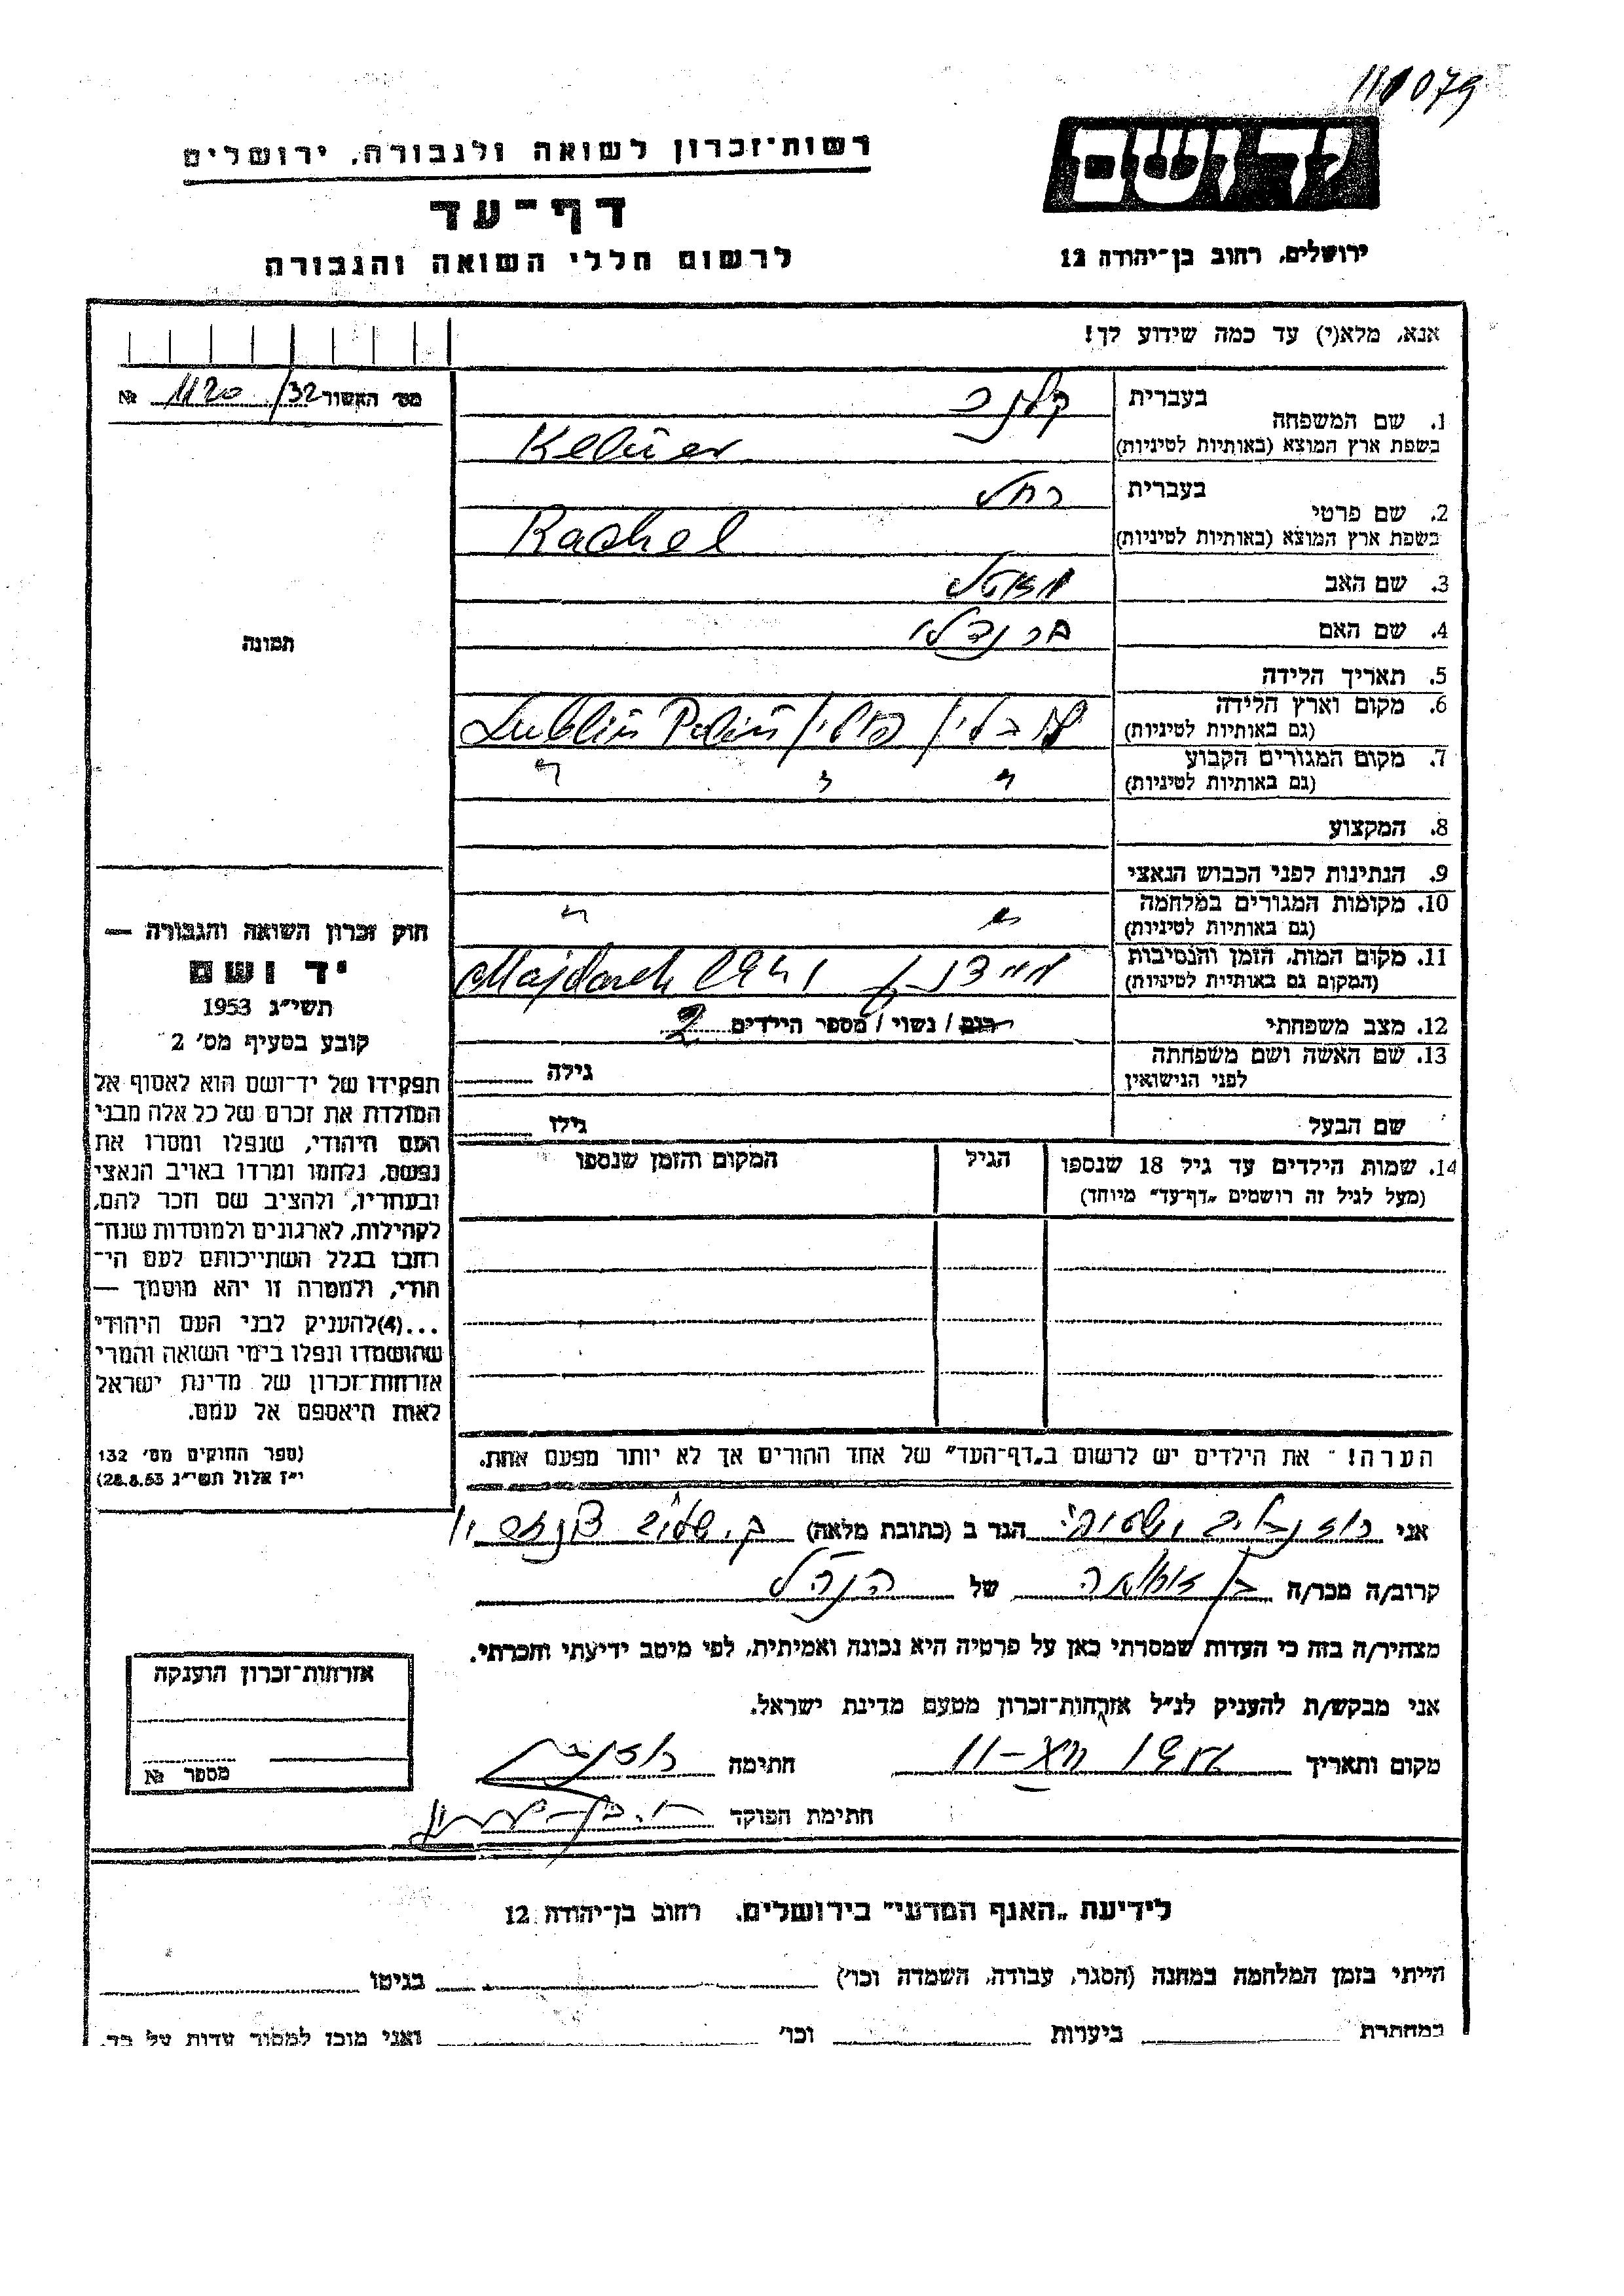 111079
יד ושם
רשות־זכרון לשואה ולגבורה, ירושלים
דף־עד
לרשום חללי השואה והגבורה
ירושלים, רחוב בן־יהודה 12
אנא, מלא(י) עד כמה שידוע לך!
מס׳ האשור 1120/32 №
תמונה
1. שם המשפחה בעברית קלנר
בשפת ארץ המוצא (באותיות לטיניות) Kelner
2. שם פרטי בעברית רחל
בשפת ארץ המוצא (באותיות לטיניות) Rachel
3. שם האב מוטל
4. שם האם
5. תאריך הלידה
6. מקום וארץ הלידה לובלין פולין Lublin Polin
(גם באותיות לטיניות)
7. מקום המגורים הקבוע " " "
(גם באותיות לטיניות)
8. המקצוע
9. הנתינות לפני הכבוש הנאצי
10. מקומות המגורים במלחמה " "
(גם באותיות לטיניות)
11. מקום המות, הזמן והנסיבות מיידנק Majdanek
(המקום גם באותיות לטיניות)
12. מצב משפחתי רווק / נשוי / מספר הילדים 2
13. שם האשה ושם משפחתה גילה
לפני הנישואין
שם הבעל גילו
14. שמות הילדים עד גיל 18 שנספו הגיל המקום והזמן שנספו
(מעל לגיל זה רושמים „דף־עד״ מיוחד)
הערה! ־ את הילדים יש לרשום ב„דף־העד״ של אחד ההורים אך לא יותר מפעם אחת.
חוק זכרון השואה והגבורה —
יד ושם
תשי״ג 1953
קובע בסעיף מס׳ 2
תפקידו של יד־ושם הוא לאסוף אל
המולדת את זכרם של כל אלה מבני
העם היהודי, שנפלו ומסרו את
נפשם, נלחמו ומרדו באויב הנאצי
ובעוזריו, ולהציב שם וזכר להם,
לקהילות, לארגונים ולמוסדות שנח־
רחבו בגלל השתייכותם לעם הי־
הודי, ולמטרה זו יהא מוסמך —
...(4)להעניק לבני העם היהודי
שהושמדו ונפלו בימי השואה והמרי
אזרחות־זכרון של מדינת ישראל
לאות היאספם אל עמם.
(ספר החוקים מס׳ 132
י״ז אלול תשי״ג 28.8.53)
אני הגר ב (כתובת מלאה)
קרוב/ה מכר/ה של
מצהיר/ה בזה כי העדות שמסרתי כאן על פרטיה היא נכונה ואמיתית, לפי מיטב ידיעתי והכרתי.
אני מבקש/ת להעניק לנ״ל אזרחות־זכרון מטעם מדינת ישראל.
מקום ותאריך חתימה
חתימת הפוקד
אזרחות־זכרון הוענקה
מספר №
לידיעת „האגף המדעי״ בירושלים, רחוב בן־יהודה 12
הייתי בזמן המלחמה במחנה (הסגר, עבודה, השמדה וכו׳) בגיטו
במחתרת ביערות וכו׳ ואני מוכן למסור עדות על כך.